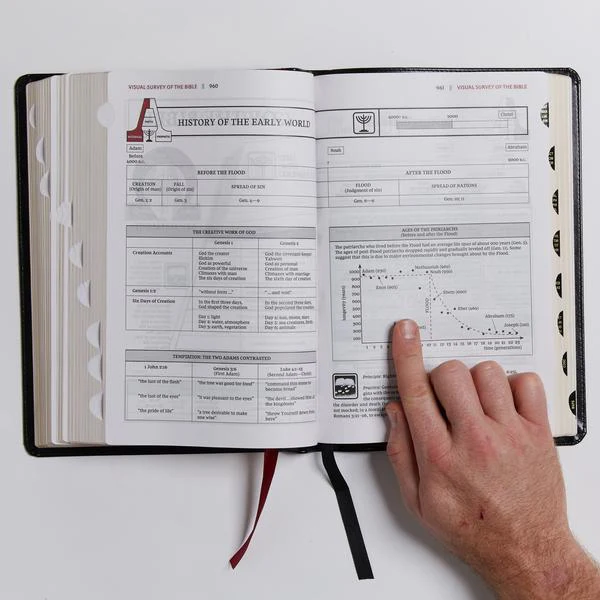 VISUAL SURVEY OF THE BIBLE || 960
HISTORY OF THE EARLY WORLD
Adam
Before
4000 B.C.
BEFORE THE FLOOD
CREATION FALL SPREAD OF SIN
(Origin of man) (Origin of sin)
Gen. 1; 2 Gen. 3 Gen. 4—9
THE CREATIVE WORK OF GOD
Genesis 1 Genesis 2
Creation Accounts God the creator God the covenant-keeper
Elohim Yahweh
God as powerful God as personal
Creation of the universe Creation of man
Climaxes with man Climaxes with marriage
The six days of creation The sixth day of creation
Genesis 1:2 "without form ... "... and void"
Six Days of Creation In the first three days, In the second three days,
God shaped the creation God populated the creation
Day 1: light Day 4: sun, moon, stars
Day 2: water, atmosphere Day 5: sea creatures, birds
Day 3: earth, vegetation Day 6: animals
TEMPTATION: THE TWO ADAMS CONTRASTED
1 John 2:16 Genesis 3:6 Luke 4:1–13
(First Adam) (Second Adam—Christ)
"the lust of the flesh" "the tree was good for food" "command this stone to
become bread"
"the lust of the eyes" "it was pleasant to the eyes" "the devil... showed Him all
the kingdoms"
"the pride of life" "a tree desirable to make "throw Yourself down from
one wise" here"
961 || VISUAL SURVEY OF THE BIBLE
4000+ B.C. Christ
Noah Abraham
AFTER THE FLOOD
FLOOD SPREAD OF NATIONS
(Judgment of sin)
Gen. 6—9 Gen. 10; 11
AGES OF THE PATRIARCHS
(Before and after the Flood)
The patriarchs who lived before the Flood had an average life span of about 900 years (Gen. 5).
The ages of post-Flood patriarchs dropped rapidly and gradually leveled off (Gen. 11). Some
suggest that this is due to major environmental changes brought about by the Flood.
Methuselah (969)
1000 Adam (930) Noah (950)
900
800 Enos (905)
700 Shem (600)
600
500 Eber (464)
400
300 Abraham (175)
200 Joseph (110)
100
longevity (years)
FLOOD
time (generations)
Principle:
Practical
the disorder and death
not mocked;
Romans